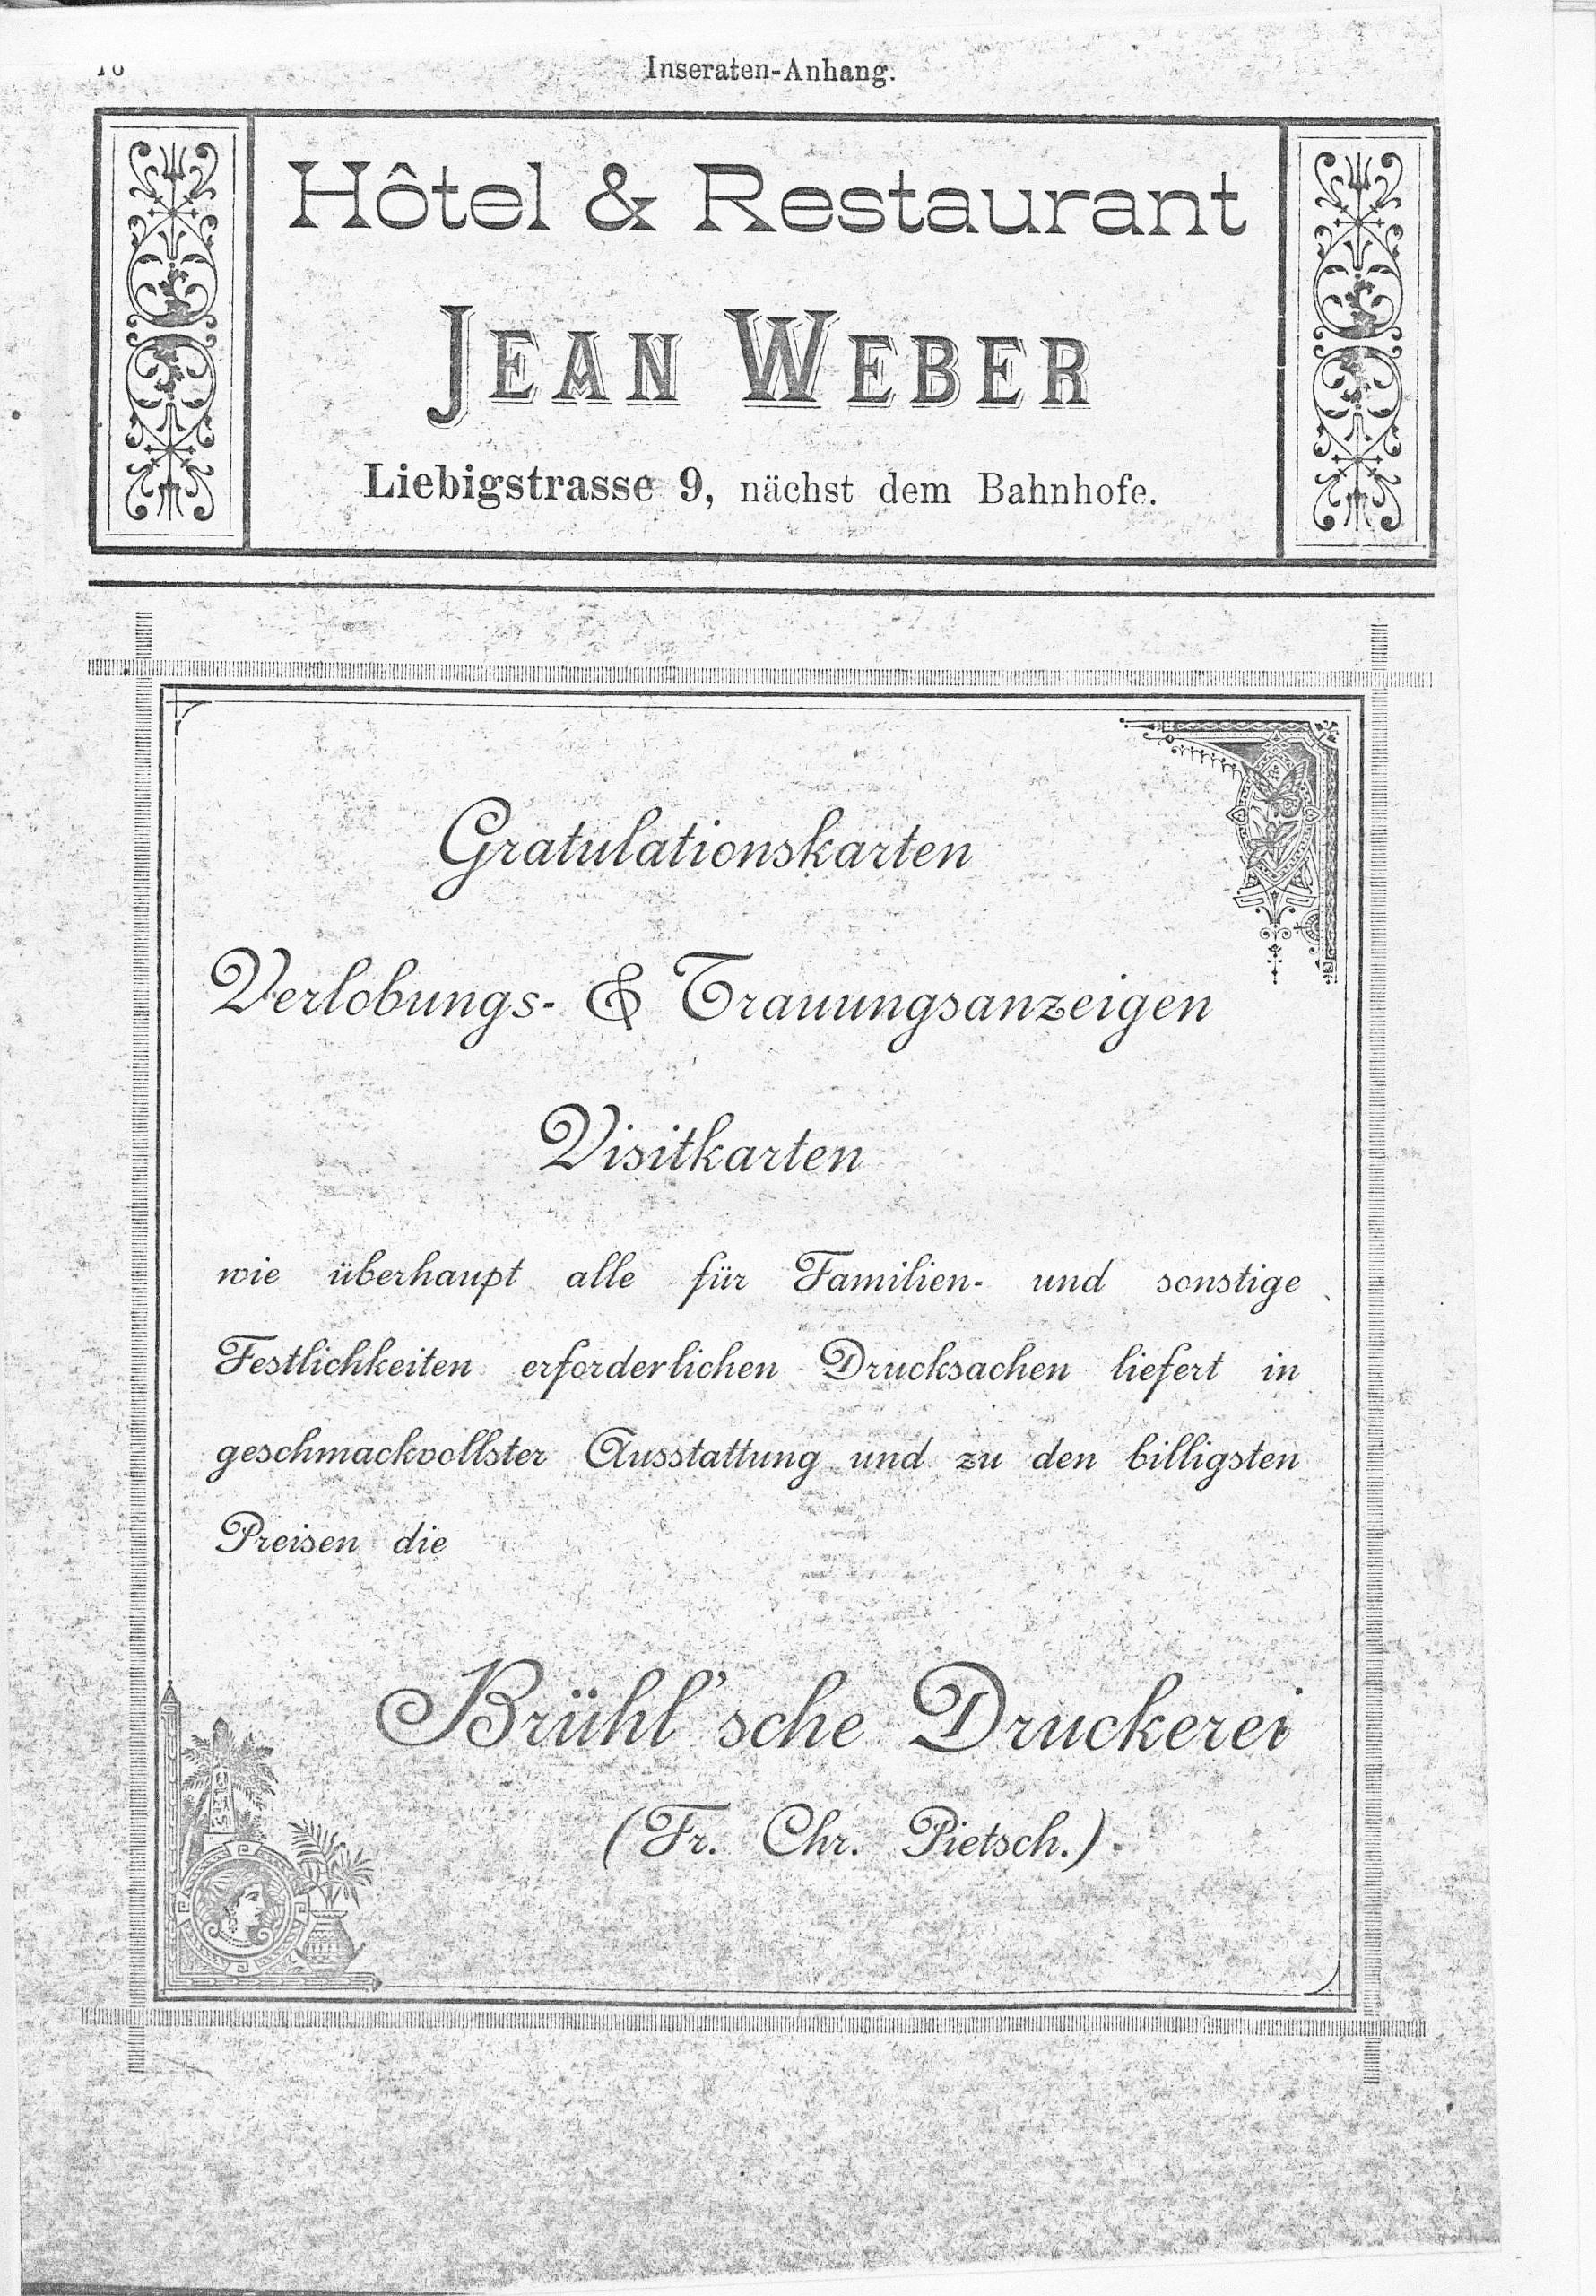 Inseraten-Anhang.
Hôtel & Restaurant
JEAN WEBER
Liebigstrasse 9, nächst dem Bahnhofe.
Gratulationskarten
Verlobungs- & Trauungsanzeigen
Visitkarten
wie überhaupt alle für Familien- und sonstige
Festlichkeiten erforderlichen Drucksachen liefert in
geschmackvollster Ausstattung und zu den billigsten
Preisen die
Brühl'sche Druckerei
(Fr. Chr. Pietsch.)